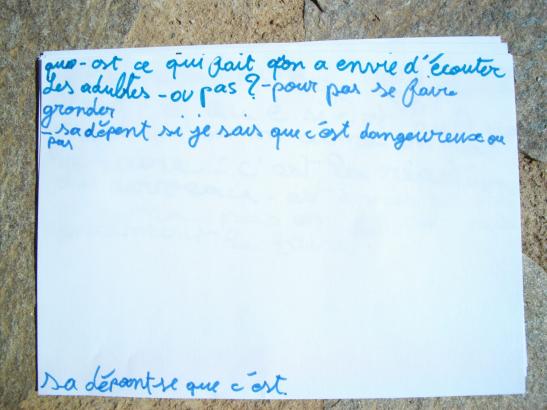 quo-est ce qui fait qu'on a envie d'écouter
des adultes - ou pas ? - pour pas se faire
gronder
- sa dépent si je sais que c'est dangoureuxe ou
pas
sa dépent se que c'est